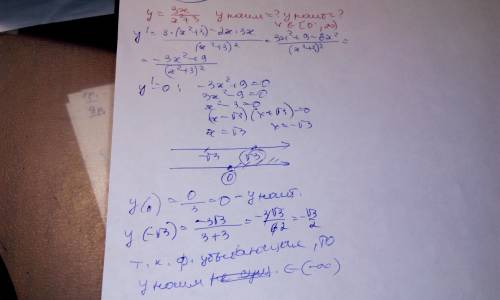 y = 3x / x²+3 y наим = ? y наиб = ?
x ∈ [0; ∞)
y' = 3·(x²+3) - 2x·3x / (x²+3)² = 3x²+9-6x² / (x²+3)² =
= -3x²+9 / (x²+3)²
y' = 0; -3x²+9=0
3x²-9=0
x²-3=0
(x-√3)(x+√3)=0
x=√3 x=-√3
-√3 √3
0
y(0) = 0/3 = 0 - y наиб.
y(-√3) = -3√3 / 3+3 = -3√3 / 62 = -√3 / 2
т.к. ф. убывающая, то
y наим не сущ. ∈ (-∞)